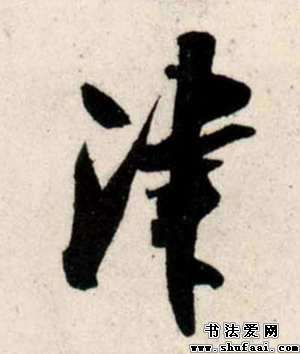 津
书法爱网
www.shufaai.com